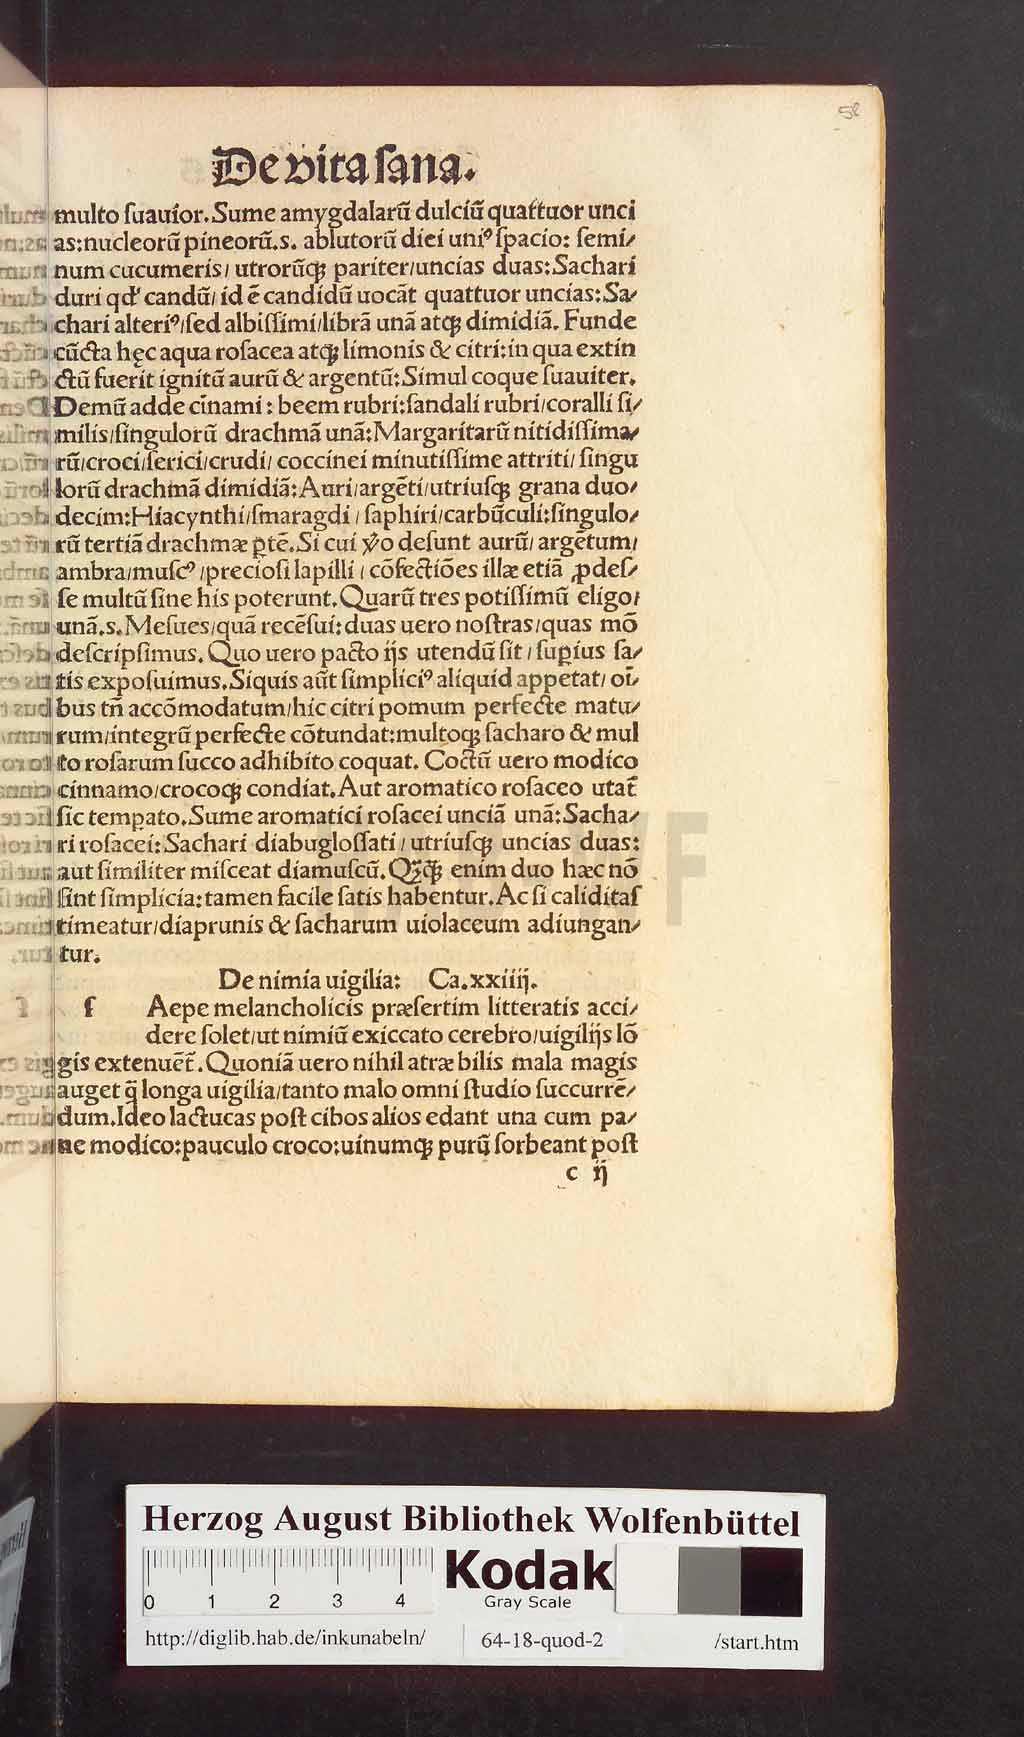 58
De vita sana.
multo ſuauior. Sume amygdalarū dulciū quattuor unci
as: nucleorū pineorū.s. ablutorū diei uniꝰ ſpacio: ſemi/
num cucumeris/ utrorūqꝫ pariter/uncias duas: Sachari
duri qđ candū/ id ē candidū uocāt quattuor uncias: Sa/
chari alteriꝰ/ſed albiſſimi/librā unā atqꝫ dimidiā. Funde
cūcta hęc aqua roſacea atqꝫ limonis & citri: in qua extin
ctū fuerit ignitū aurū & argentū: Simul coque ſuauiter.
Demū adde cīnami: beem rubri: ſandali rubri/coralli ſi/
milis/ſingulorū drachmā unā: Margaritarū nitidiſſima/
rū/croci/ſerici/crudi/ coccinei minutiſſime attriti/ ſingu
lorū drachmā dimidiā: Auri/argēti/utriuſqꝫ grana duo/
decim: Hiacynthi/ſmaragdi/ ſaphiri/carbūculi: ſingulo/
rū tertiā drachmæ ꝑtē. Si cui ꝟo deſunt aurū/ argētum/
ambra/muſcꝰ/precioſi lapilli/ cōfectiōes illæ etiā ꝓdeſ/
ſe multū ſine his poterunt. Quarū tres potiſſimū eligo/
unā.s. Meſues/quā recēſui: duas uero noſtras/quas mō
deſcripſimus. Quo uero pacto ijs utendū ſit/ ſuꝑius ſa/
tis expoſuimus. Siquis aūt ſimpliciꝰ aliquid appetat/ oī/
bus tn̄ accōmodatum/hic citri pomum perfecte matu/
rum/integrū perfecte cōtundat: multoqꝫ ſacharo & mul
to roſarum ſucco adhibito coquat. Coctū uero modico
cinnamo/crocoqꝫ condiat. Aut aromatico roſaceo utat̄
ſic temꝑato. Sume aromatici roſacei unciā unā: Sacha/
ri roſacei: Sachari diabugloſſati/ utriuſqꝫ uncias duas:
aut ſimiliter miſceat diamuſcū. Qꝫꝗꝫ enim duo hæc nō
ſint ſimplicia: tamen facile ſatis habentur. Ac ſi caliditaſ
timeatur/diaprunis & ſacharum uiolaceum adiungan/
tur.
De nimia uigilia: Ca.xxiiij.
ſ Aepe melancholicis præſertim litteratis acci/
dere ſolet/ut nimiū exiccato cerebro/uigilijs lō
gis extenuēt̄. Quoniā uero nihil atræ bilis mala magis
auget q̄ longa uigilia/tanto malo omni ſtudio ſuccurrē/
dum. Ideo lactucas poſt cibos alios edant una cum pa/
ne modico: pauculo croco: uinumqꝫ purū ſorbeant poſt
c ij
Herzog August Bibliothek Wolfenbüttel
0 1 2 3 4
Kodak
Gray Scale
http://diglib.hab.de/inkunabeln/
64-18-quod-2
/start.htm